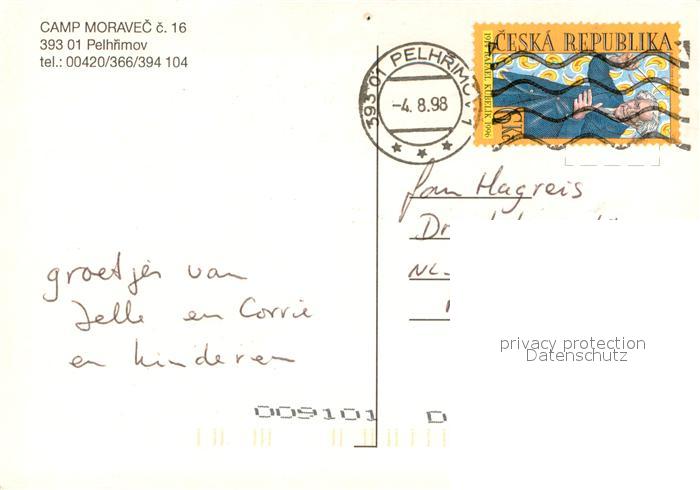 CAMP MORAVEČ č. 16
393 01 Pelhřimov
tel.: 00420/366/394 104
393 01 PELHŘIMOV 1
-4.8.98
ČESKÁ REPUBLIKA
1914 RAFAEL KUBELÍK 1996
6 Kč
Jan Hagreis
Dr
NL-
groetjes van
Jelle en Corrie
en kinderen
privacy protection
Datenschutz
009101 D